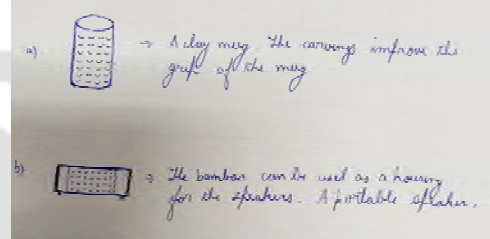 a) → A clay mug. The carvings improve the
grip of the mug
b) → The bamboo can be used as a housing
for the speakers. A portable speaker.